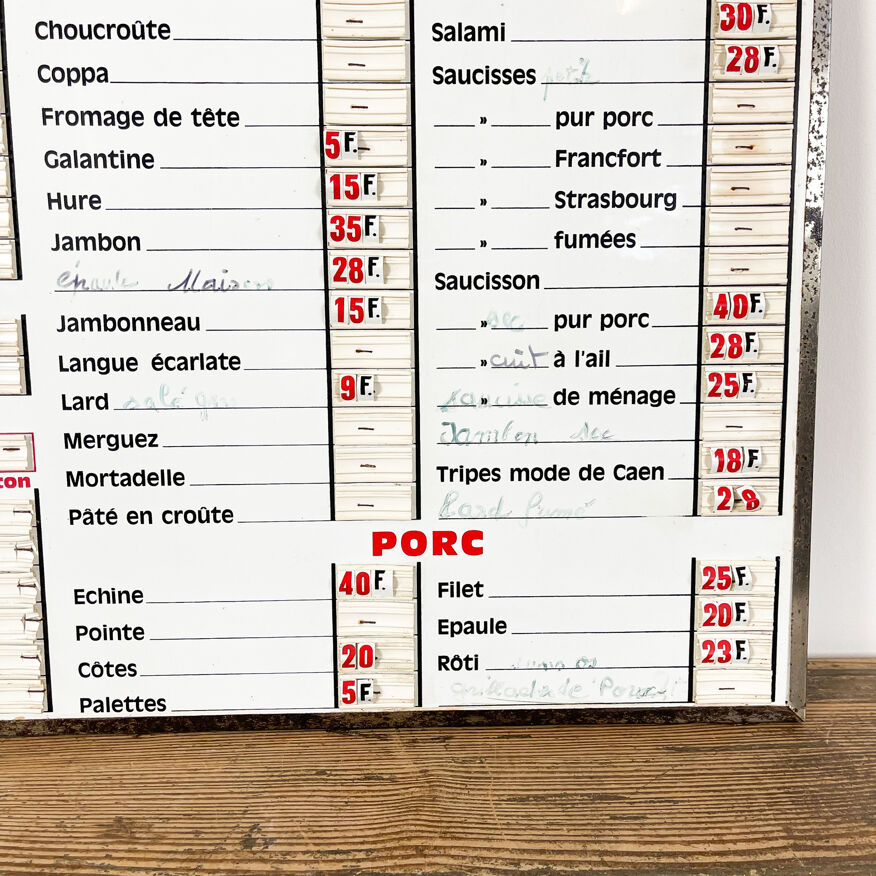 Choucroûte
Coppa
Fromage de tête
Galantine 5 F.
Hure 15 F.
Jambon 35 F.
épaule Maison 28 F.
Jambonneau 15 F.
Langue écarlate
Lard salé 9 F.
Merguez
Mortadelle
Pâté en croûte
Salami 30 F.
Saucisses 28 F.
» pur porc
» Francfort
» Strasbourg
» fumées
Saucisson
» sec pur porc 40 F.
» cuit à l'ail 28 F.
» de ménage 25 F.
Jambon sec
Tripes mode de Caen 18 F.
Lard fumé 28
ton
PORC
Echine 40 F.
Pointe
Côtes 20
Palettes 5 F
Filet 25 F.
Epaule 20 F.
Rôti 23 F.
grillade de Porc